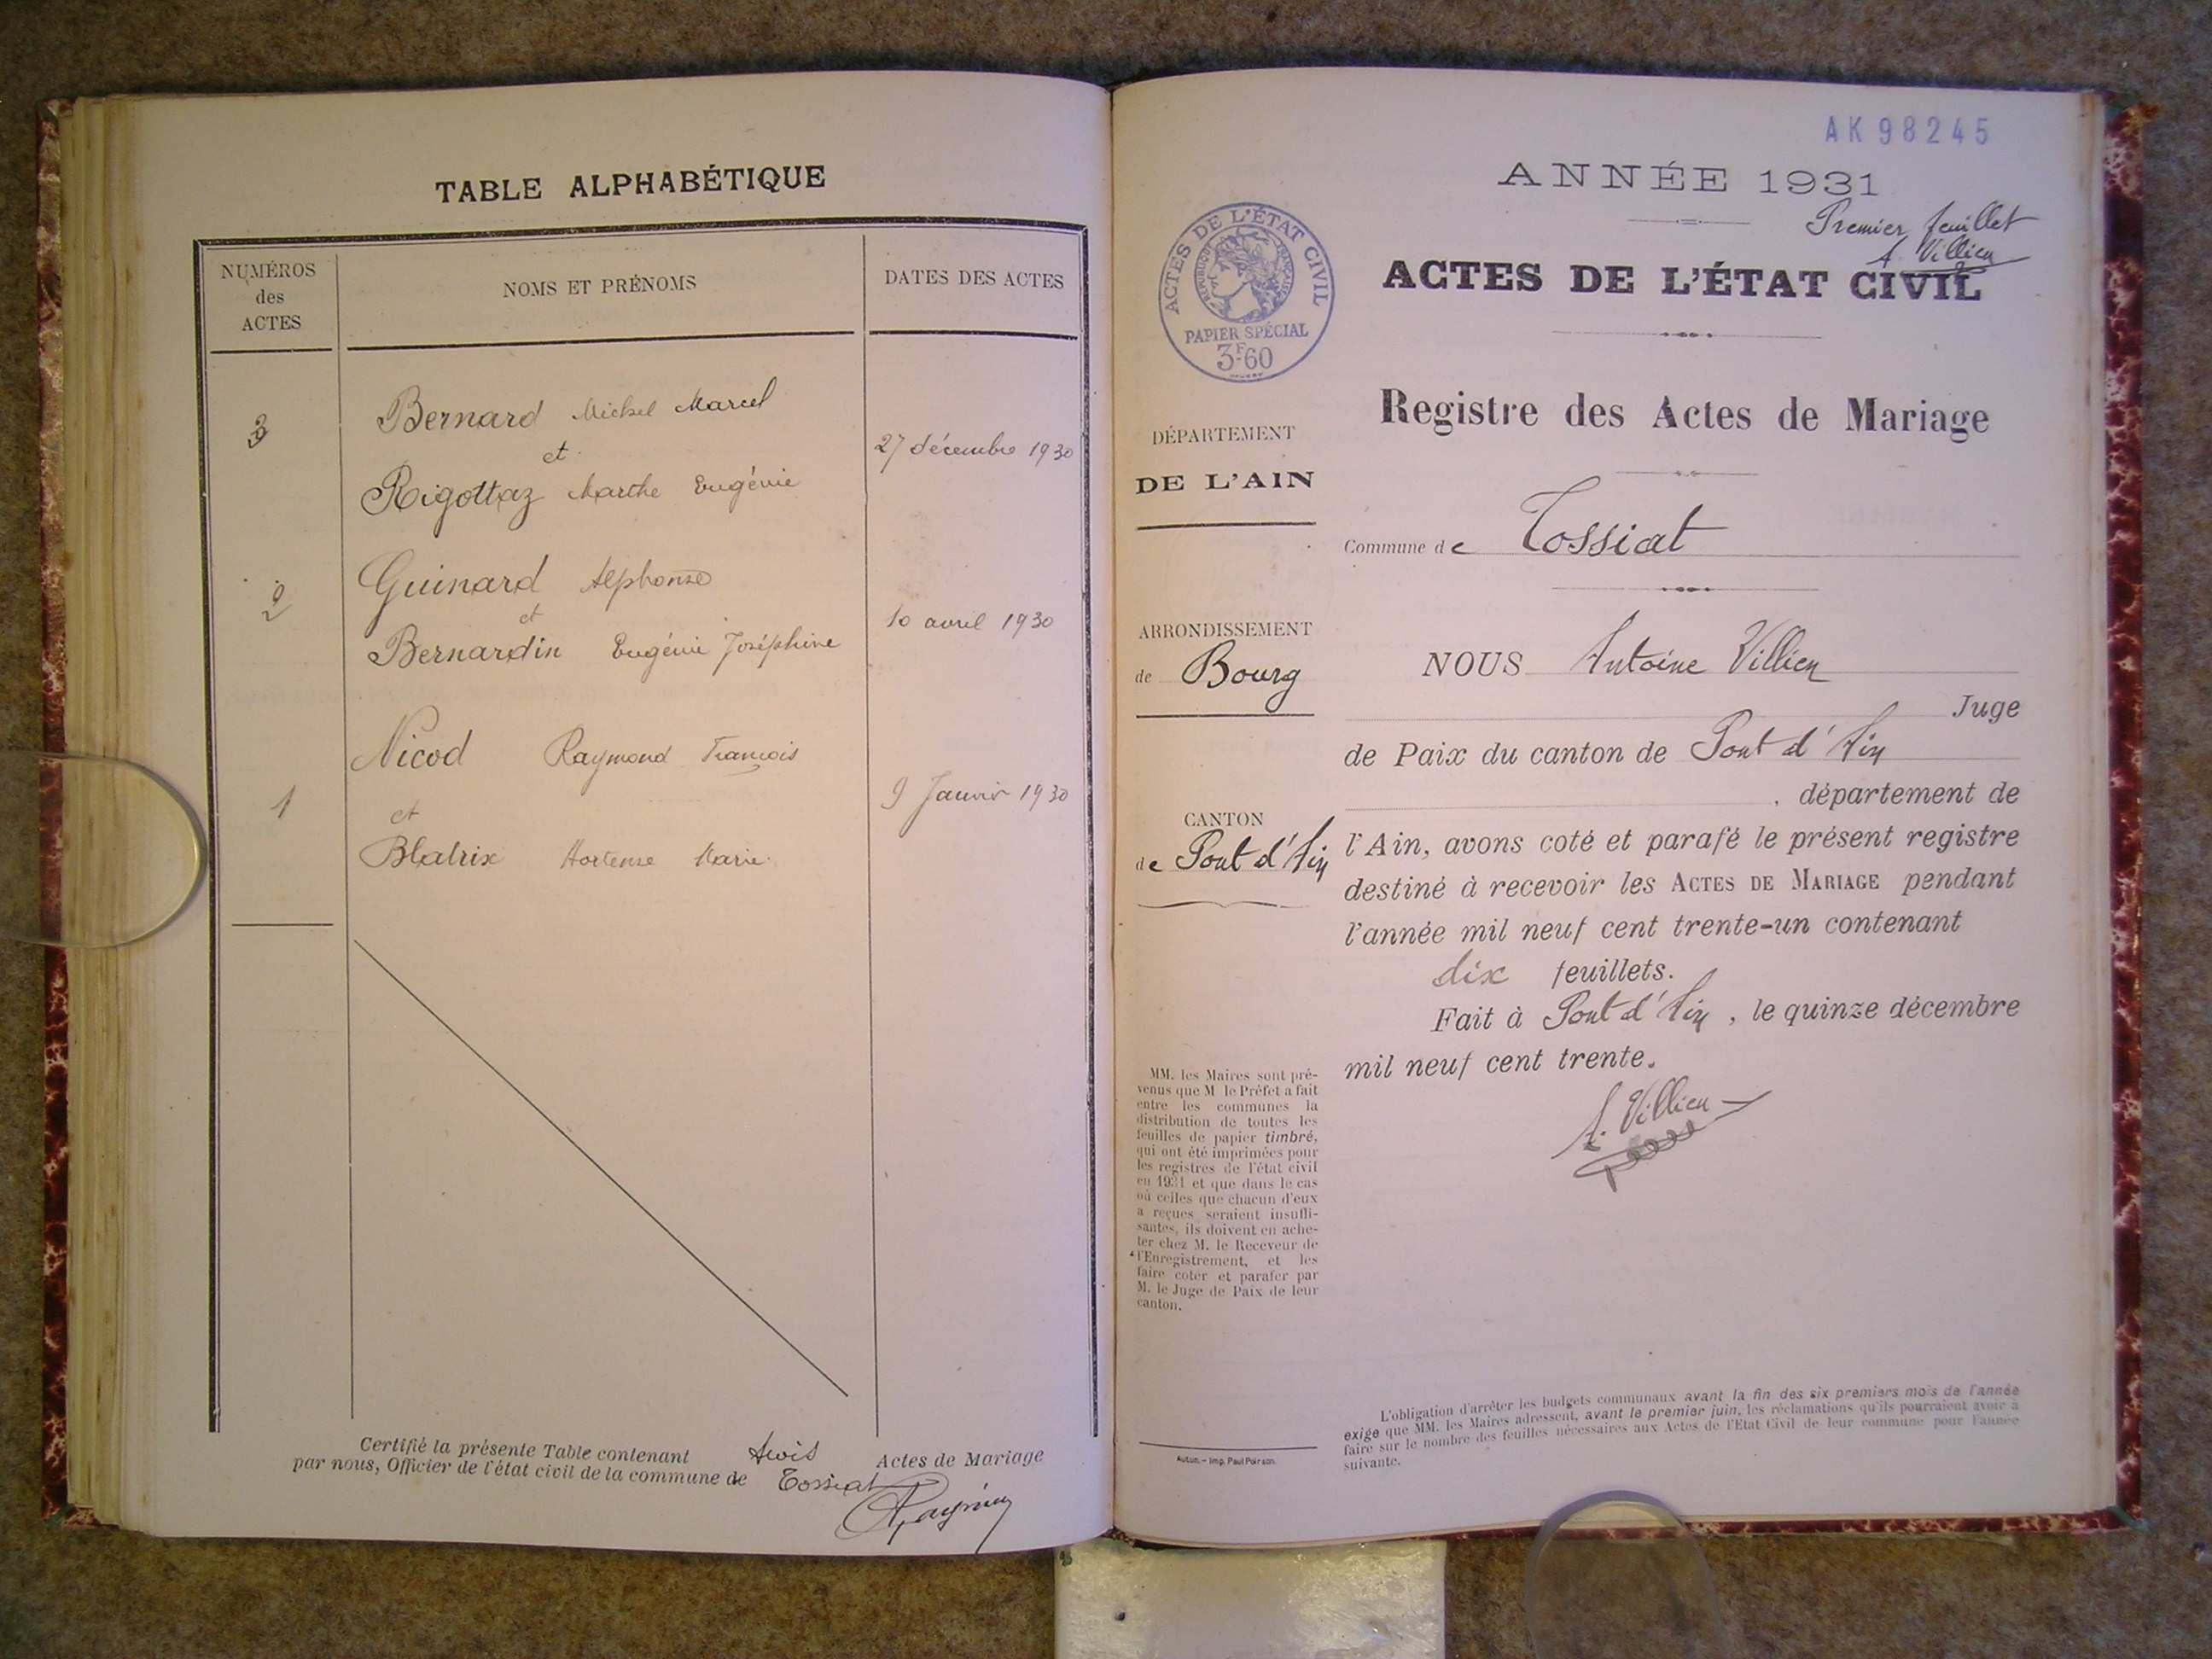 TABLE ALPHABÉTIQUE
NUMÉROS
des
ACTES
NOMS ET PRÉNOMS
DATES DES ACTES
3
Bernard Michel Marcel
et
Rigottaz Marthe Eugénie
27 décembre 1930
2
Guinard Alphonse
et
Bernardin Eugénie Joséphine
10 avril 1930
1
Nicod Raymond François
et
Blatrix Hortense Marie
9 Janvier 1930
Certifié la présente Table contenant trois Actes de Mariage
par nous, Officier de l'état civil de la commune de Tossiat
AK 98245
ANNÉE 1931
Premier feuillet
A. Villien
ACTES DE L'ÉTAT CIVIL
ACTES DE L'ÉTAT CIVIL
RÉPUBLIQUE FRANÇAISE
PAPIER SPÉCIAL
3F60
Registre des Actes de Mariage
DÉPARTEMENT
DE L'AIN
Commune de Tossiat
ARRONDISSEMENT
de Bourg
CANTON
de Pont d'Ain
NOUS Antoine Villien
Juge
de Paix du canton de Pont d'Ain
, département de
l'Ain, avons coté et parafé le présent registre
destiné à recevoir les ACTES DE MARIAGE pendant
l'année mil neuf cent trente-un contenant
dix feuillets.
Fait à Pont d'Ain, le quinze décembre
mil neuf cent trente.
A. Villien
MM. les Maires sont pré-
venus que M le Préfet a fait
entre les communes la
distribution de toutes les
feuilles de papier timbré,
qui ont été imprimées pour
les registres de l'état civil
en 1931 et que dans le cas
où celles que chacun d'eux
a reçues seraient insuffi-
santes, ils doivent en ache-
ter chez M. le Receveur de
l'Enregistrement, et les
faire coter et parafer par
M. le Juge de Paix de leur
canton.
Autun. - Imp. Paul Poirson.
L'obligation d'arrêter les budgets communaux avant la fin des six premiers mois de l'année
exige que MM. les Maires adressent, avant le premier juin, les réclamations qu'ils pourraient avoir à
faire sur le nombre des feuilles nécessaires aux Actes de l'Etat Civil de leur commune pour l'année
suivante.